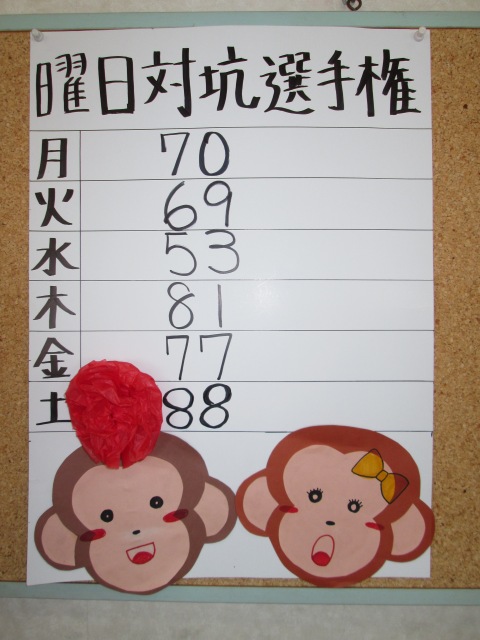 曜日対坑選手権
月 70
火 69
水 53
木 81
金 77
土 88